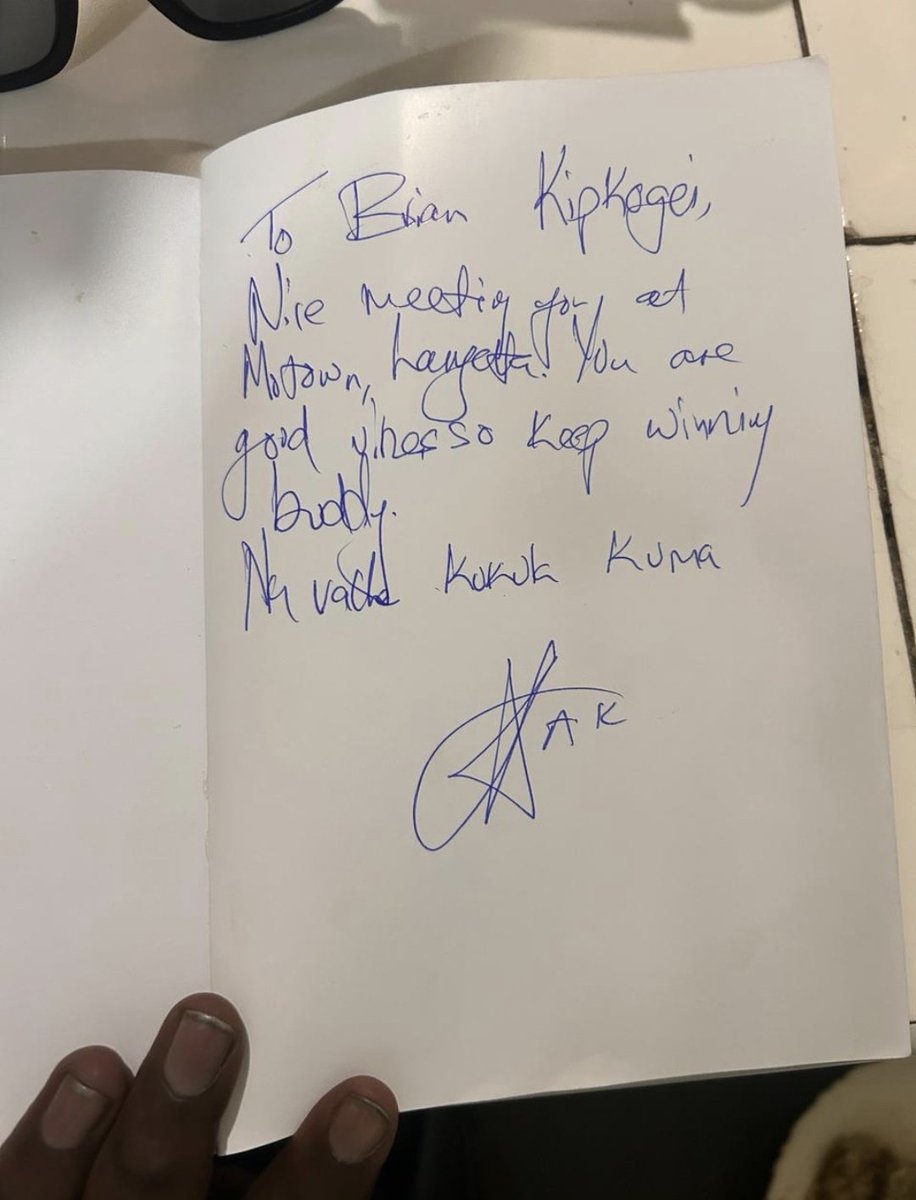 To Brian Kipkogei,
Nice meeting you at
Motown, Langatta. You are
good vibes so keep winning
buddy.
Kukuh Kuma
AK